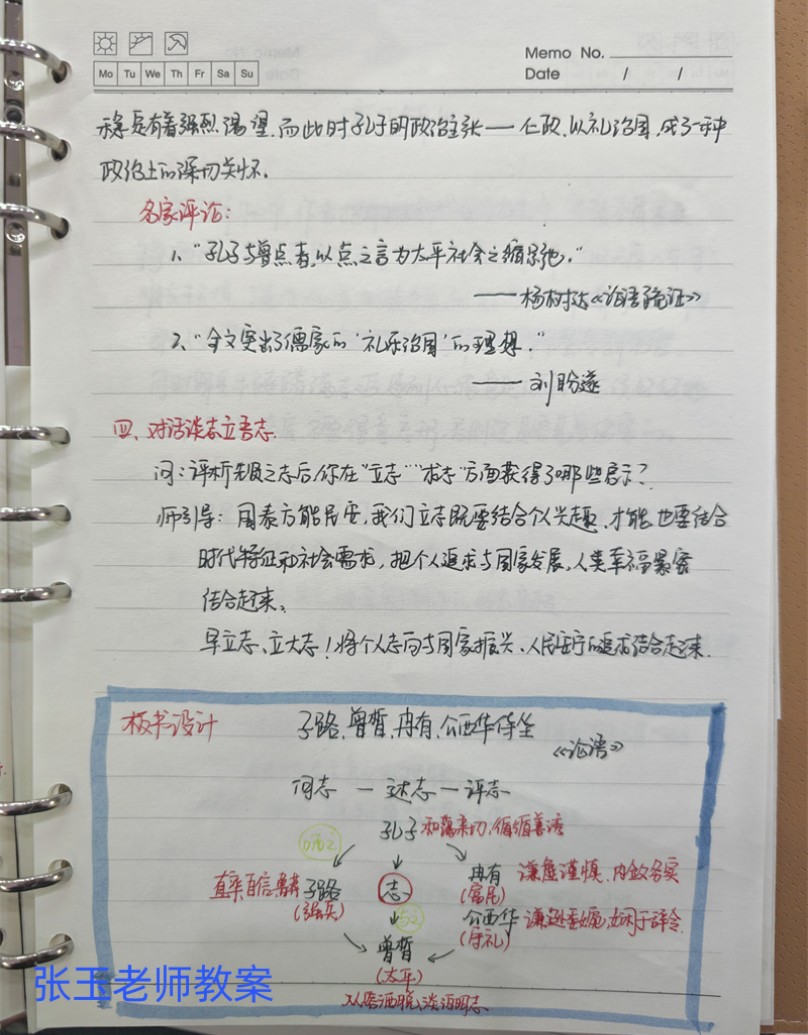 Memo No.
Mo Tu We Th Fr Sa Su
Date / /
稳定有着强烈渴望,而此时孔子的政治主张——仁政,以礼治国,成了一种
政治上的深切关怀。
名家评论:
1、“孔子与曾点者,以点之言为太平社会之缩影也。”
——杨树达《论语疏证》
2、“全文突出了儒家的‘礼乐治国’的理想。”
——刘盼遂
四、对话谈志立吾志.
问:评析先贤之志后,你在“立志”“求志”方面获得了哪些启示?
师引导:国泰方能民安,我们立志既要结合个人兴趣、才能,也要结合
时代特征和社会需求,把个人追求与国家发展、人类幸福紧密
结合起来。
早立志、立大志!将个人志向与国家振兴、人民安宁的追求结合起来.
板书设计
子路、曾皙、冉有、公西华侍坐
《论语》
问志—述志—评志
孔子 和蔼亲切、循循善诱
哂之
直率自信鲁莽 子路 志 冉有 谦虚谨慎、内敛务实
(强兵) (富民)
与之 公西华 谦逊委婉,娴于辞令.
曾皙 (守礼)
(太平)
从容洒脱,淡泊明志.
张玉老师教案